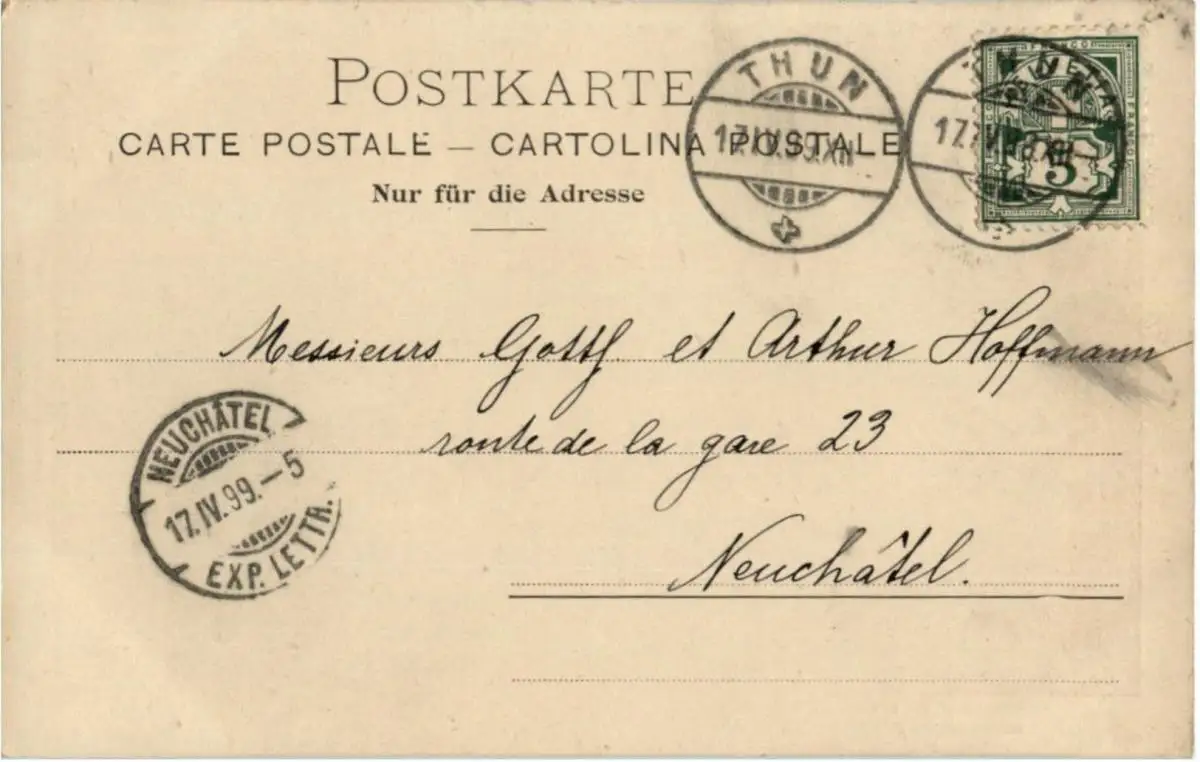 POSTKARTE
CARTE POSTALE – CARTOLINA POSTALE
Nur für die Adresse
THUN
17.IV.99.XII
THUN
17.IV.99.XII
FRANCO
HELVETIA
5
Messieurs Gottf. et Arthur Hoffmann
route de la gare 23
Neuchâtel.
NEUCHÂTEL
17.IV.99.–5
EXP. LETTR.